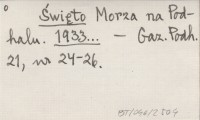 Święto Morza na Pod-
halu. 1933... — Gaz. Podh.
21, nr 24-26.